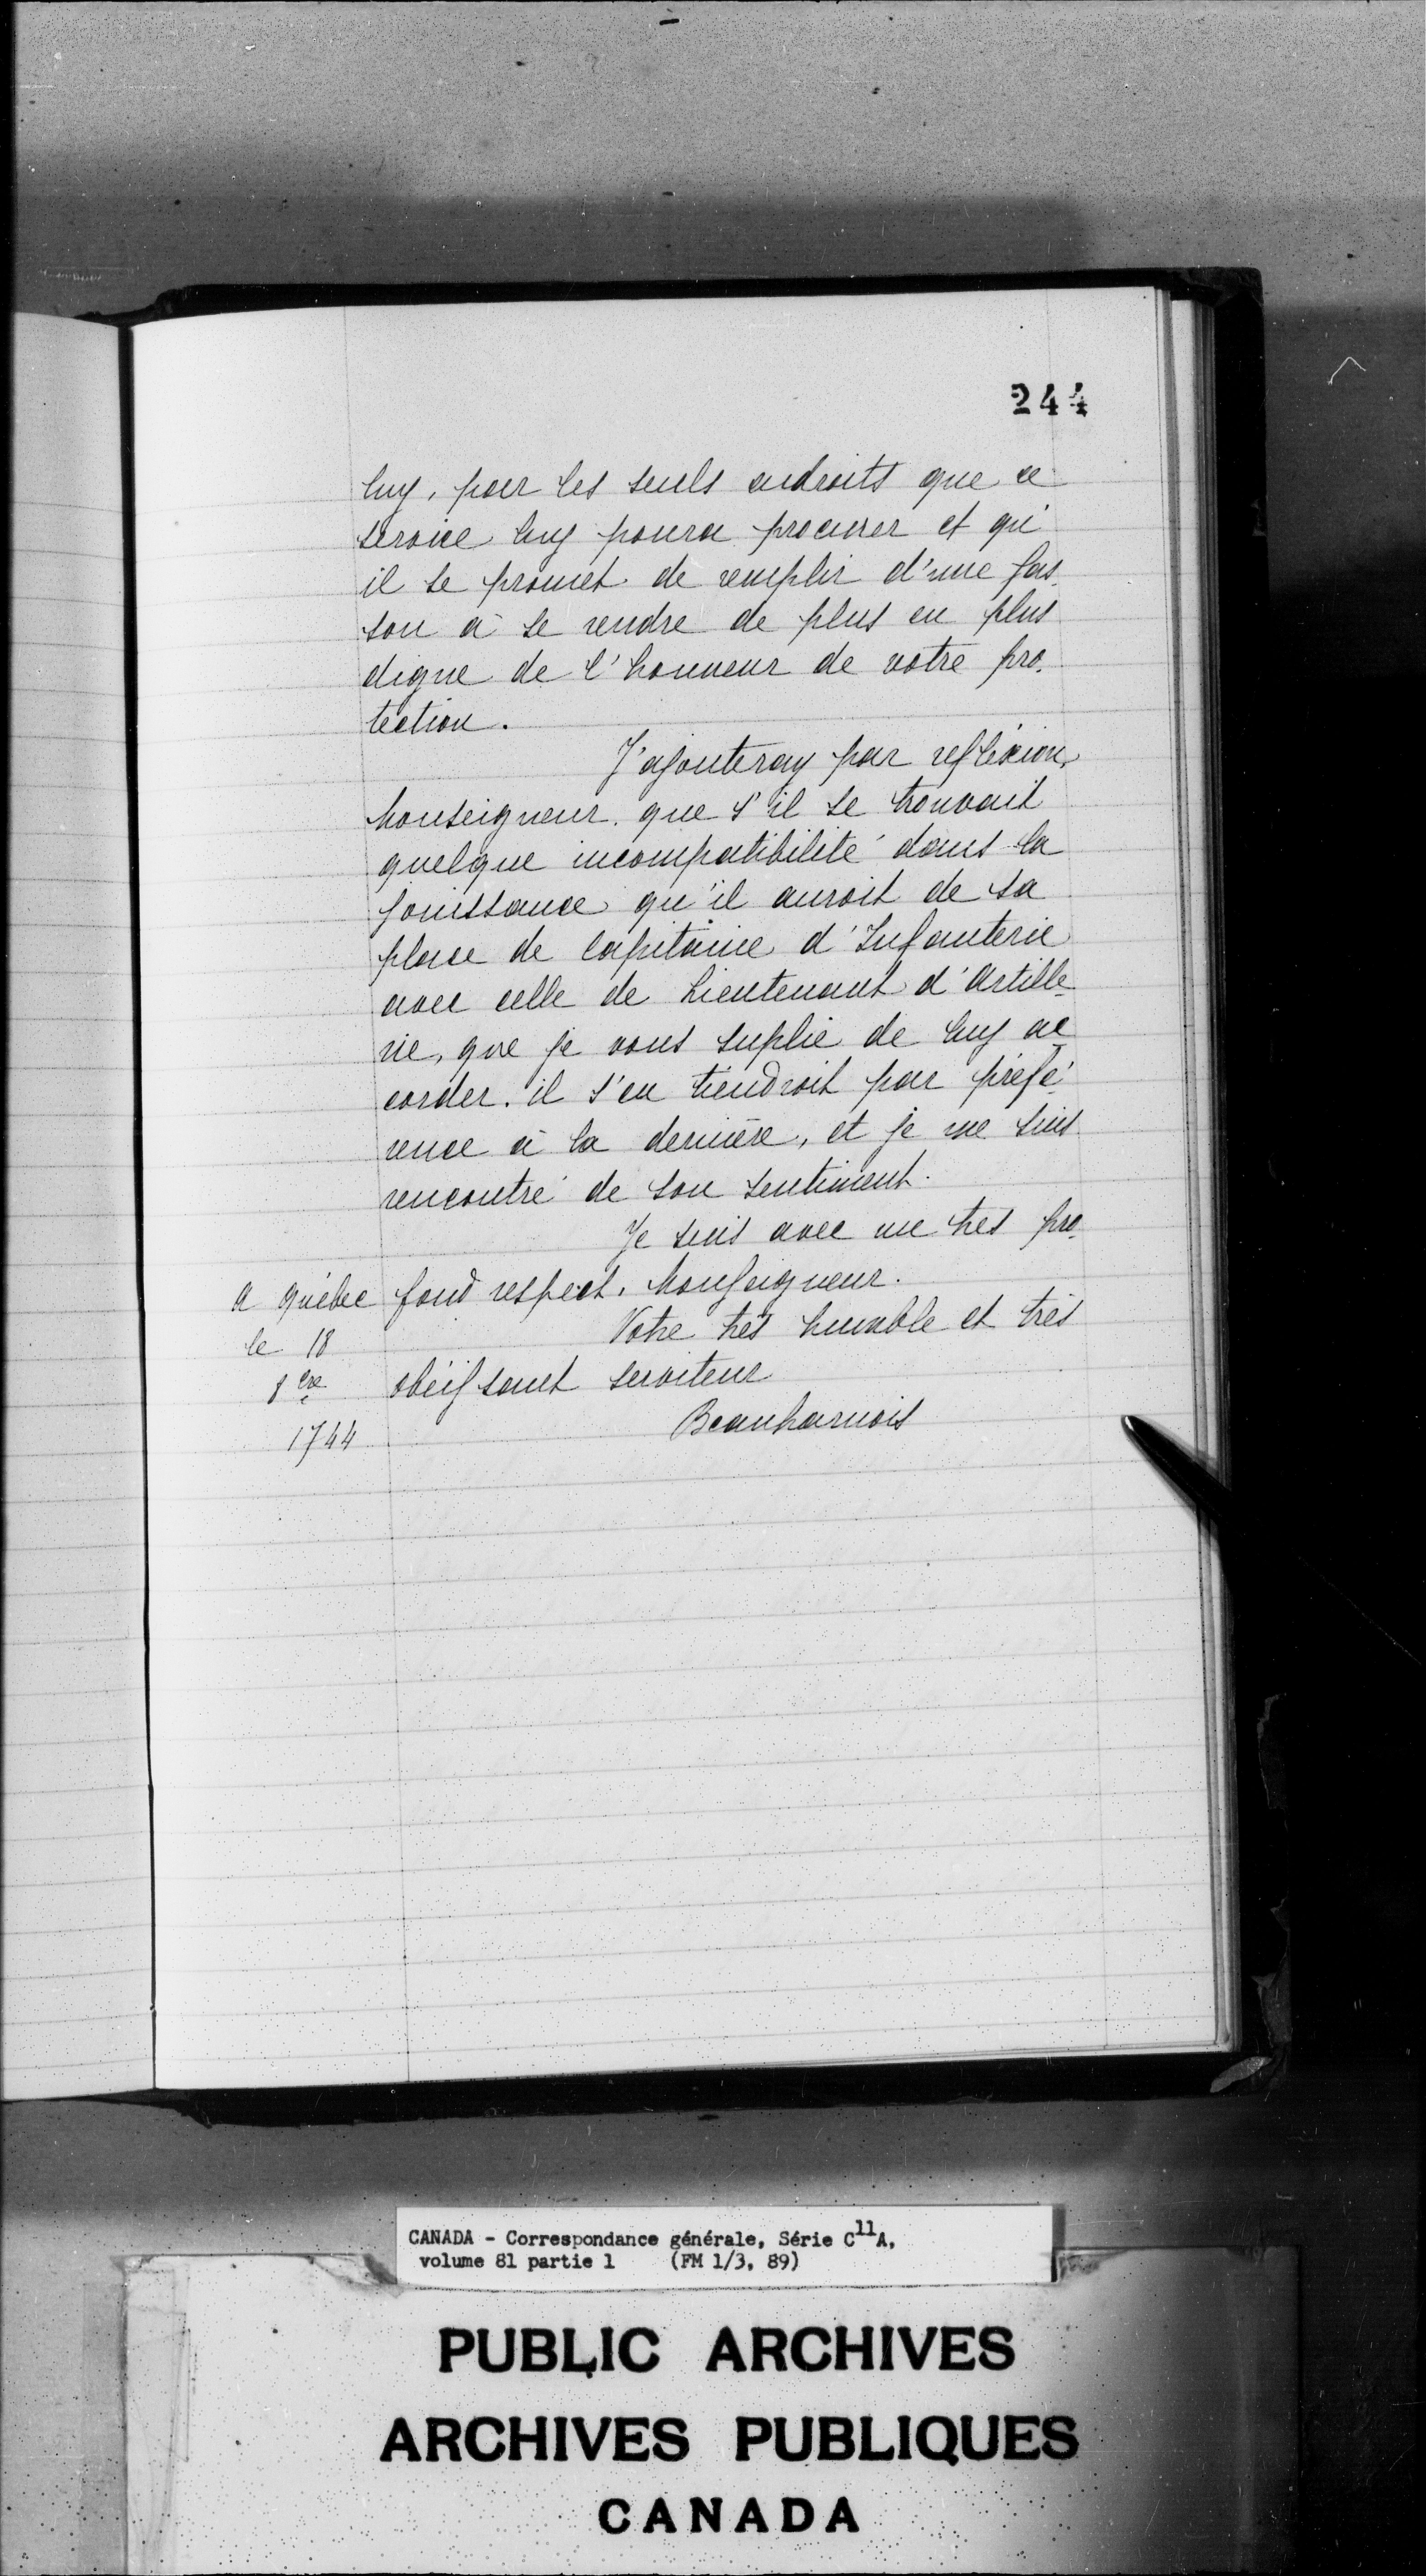 244
luy, pour les seuls endroits que ce
service luy poura procurer et qu'
il se promet de remplir d'une fas-
son à se rendre de plus en plus
digne de l'honneur de votre pro-
tection.
J'ajouteray par refléxion,
Monseigneur, que s'il se trouvait
quelque incompatibilité dans la
jouissance qu'il auroit de sa
place de Capitaine d'Infanterie
avec celle de Lieutenant d'Artille-
rie, que je vous suplie de luy ac-
corder, il s'en tiendroit par préfé-
rence à la dernière, et je me suis
rencontré de son sentiment.
Je suis avec un très pro-
fond respect, Monseigneur.
Votre très humble et très
obéissant serviteur
Beauharnois
a québec
le 18
8bre
1744
CANADA - Correspondance générale, Série C11A,
volume 81 partie 1 (FM 1/3, 89)
PUBLIC ARCHIVES
ARCHIVES PUBLIQUES
CANADA